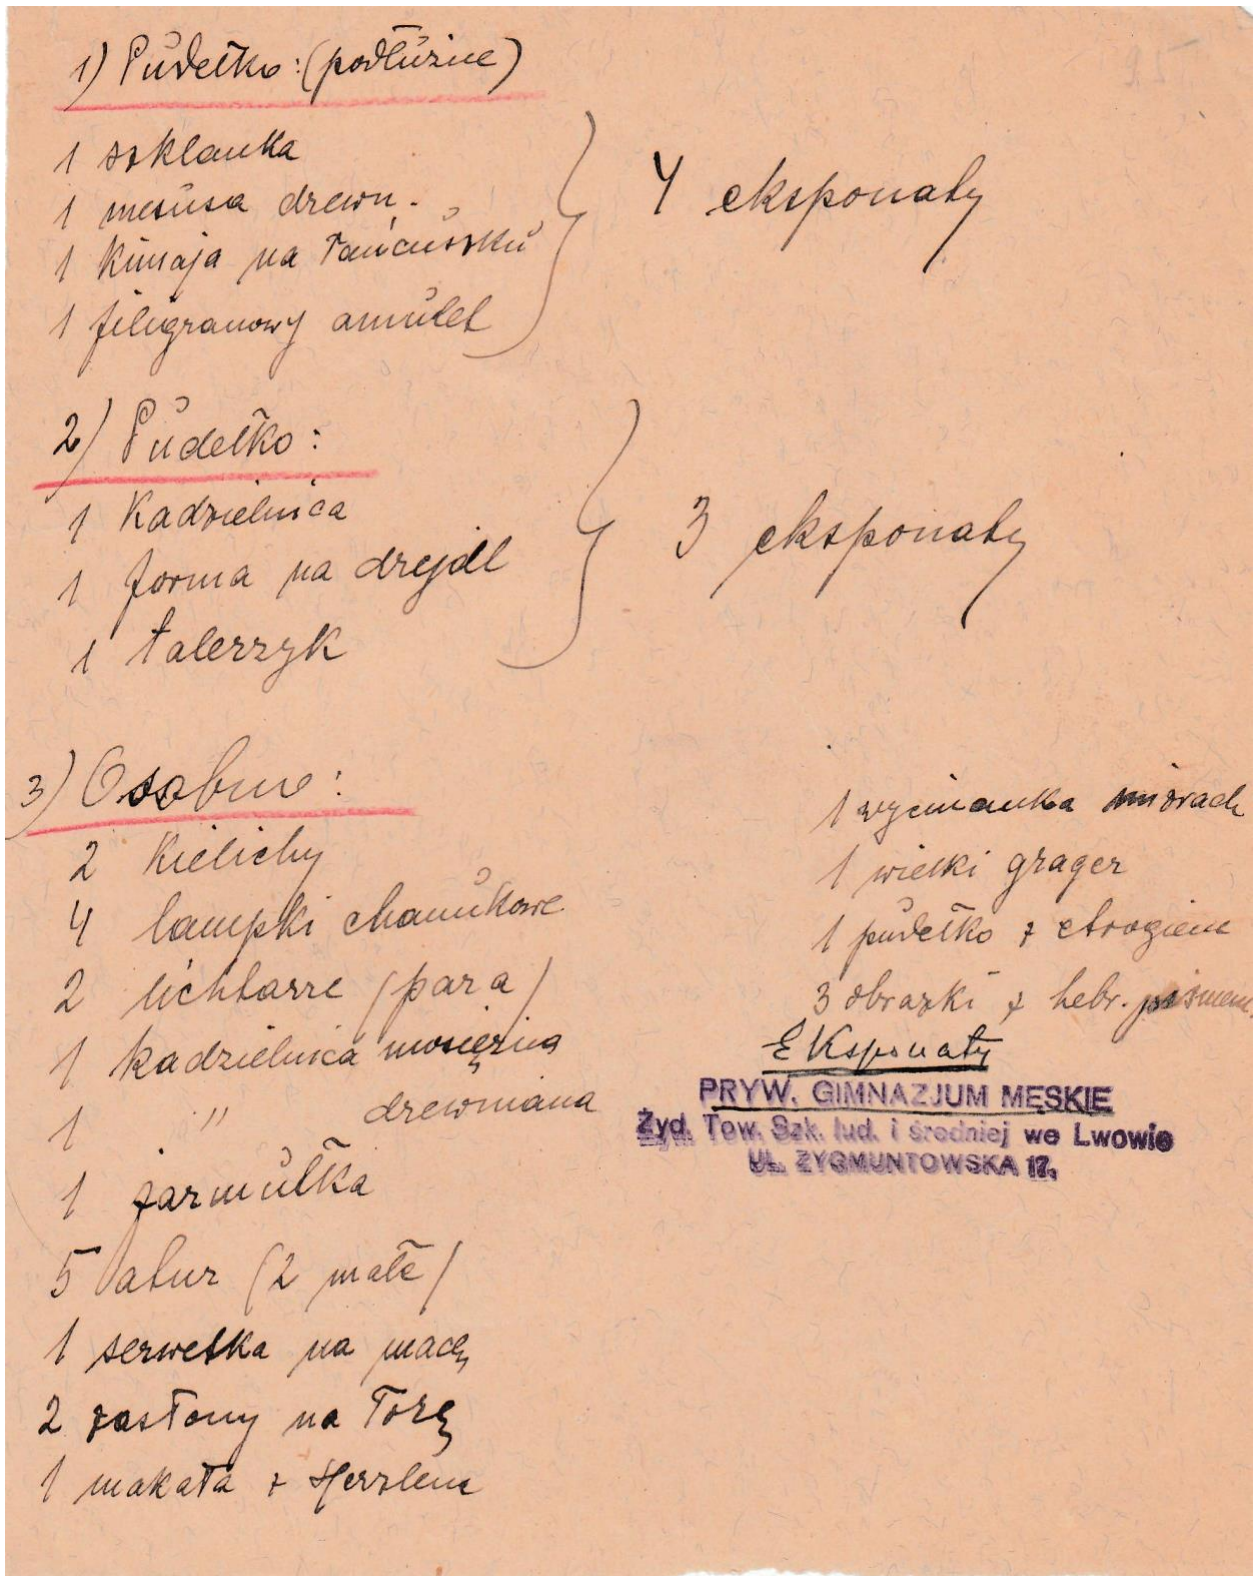 1) Pudełko: (podłużne)
1 szklanka
1 mesusa drewn.
1 Kimaja na łańcuszku
1 filigranowy amulet
4 eksponaty
2) Pudełko:
1 Kadzielnica
1 forma na drejdl
1 talerzyk
3 eksponaty
3) Osobno:
2 Kielichy
4 lampki chanukowe
2 lichtarze (para)
1 kadzielnica mosiężna
1 " drewniana
1 jarmułka
5 atar (2 małe)
1 serwetka na macę
2 zasłony na Torę
1 makata z Herzlem
1 wycinanka mizrach
1 wielki grager
1 pudełko z etrogiem
3 obrazki z hebr. pismem.
Eksponaty
PRYW. GIMNAZJUM MĘSKIE
Żyd. Tow. Szk. lud. i średniej we Lwowie
UL. ZYGMUNTOWSKA 17.